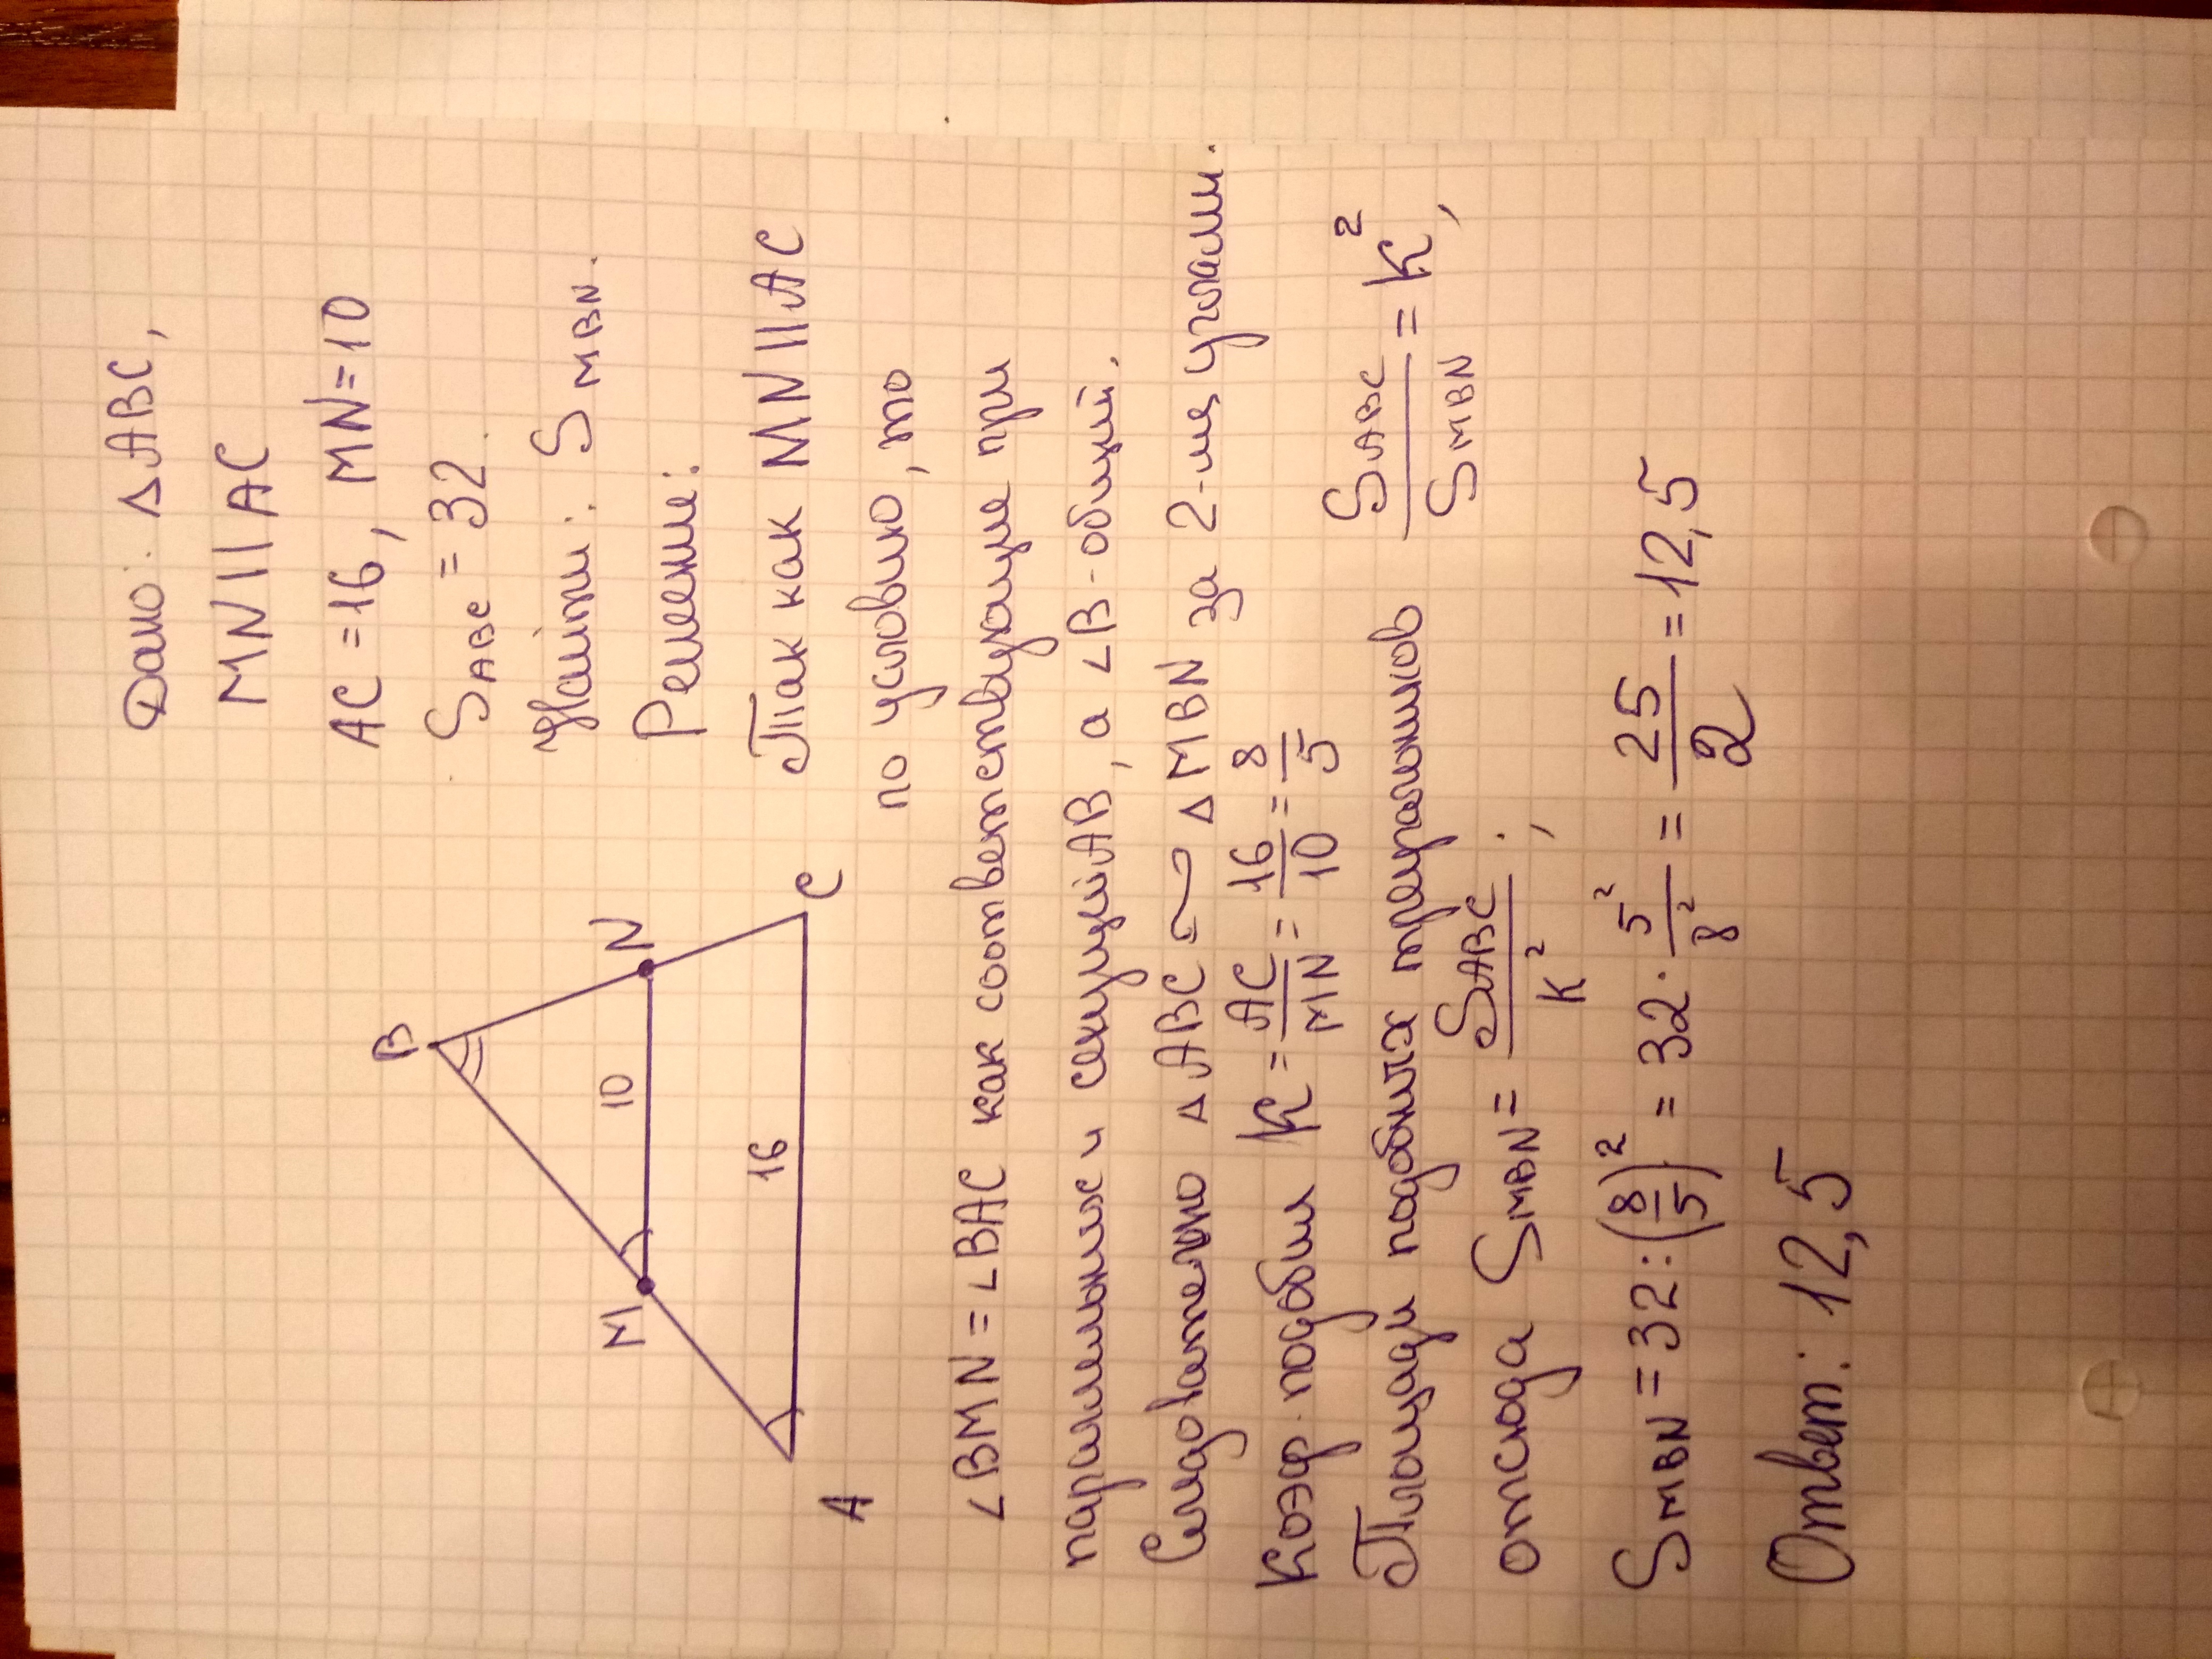 Дано: ΔABC,
MN || AC
AC = 16, MN = 10
S ABC = 32.
Найти: S MBN.
Решение:
Так как MN || AC
по условию, то
B
M
N
10
16
A
C
∠BMN = ∠BAC как соответствующие при
параллельных и секущей AB, а ∠B - общий.
Следовательно ΔABC ∽ ΔMBN за 2-мя углами.
Коэф. подобия K = AC/MN = 16/10 = 8/5
Площади подобных треугольников S ABC / S MBN = K²,
отсюда S MBN = S ABC / K² ;
S MBN = 32 : (8/5)² = 32 · 5²/8² = 25/2 = 12,5
Ответ: 12,5